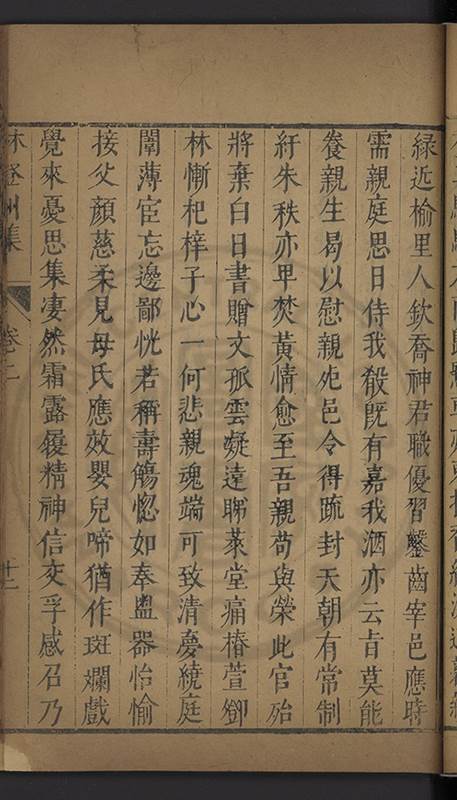 緑近榆里人欽喬神君職優習鑿齒宰邑應時
需親庭思日侍我殽旣有嘉我酒亦云旨莫能
養親生曷以慰親死邑令得疏封天朝有常制
紆朱秩亦卑焚黃情愈至吾親苟與榮此官殆
將棄白日書贈文孤雲凝遠睇萊堂痛椿萱鄧
林慚杞梓子心一何悲親魂端可致清夢繞庭
闈薄宦忘邊鄙恍若稱壽觴惚如奉盥器怡愉
接父顔慈柔見母氏應效嬰兒啼猶作斑斕戲
覺來憂思集凄然霜露履精神信交孚感召乃
林登州集 卷二 十二